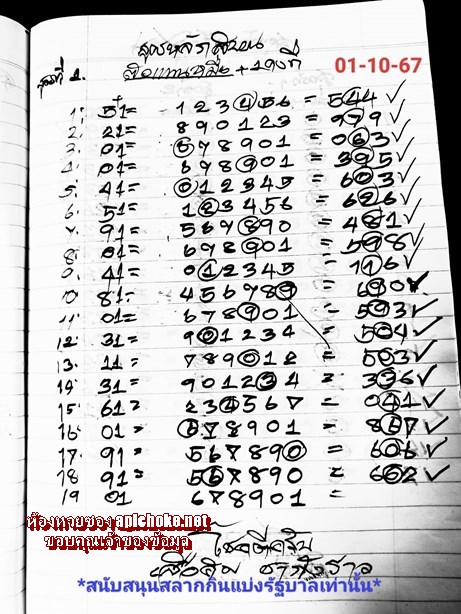 สูตรหลักสิบบน
01-10-67
สูตรที่ 1.
1. 51= 123456 = 544 ✓
2. 21= 890123 = 979 ✓
3. 01= 678901 = 063 ✓
4. 01= 678901 = 395 ✓
5. 41= 012345 = 603 ✓
6. 51= 123456 = 626 ✓
7. 91= 567890 = 481 ✓
8. 01= 678901 = 598 ✓
9. 41= 012345 = 116 ✓
10 81= 456789 = 690 ✓
11. 01= 678901 = 593 ✓
12. 31= 901234 = 504 ✓
13. 11= 789012 = 503 ✓
14. 31= 901234 = 336 ✓
15. 61= 234567 = 041 ✓
16. 01= 678901 = 867 ✓
17. 91= 567890 = 606 ✓
18 91= 567890 = 662 ✓
19 01 678901 =
ห้องหวยของ apichoke.net
ขอบคุณเจ้าของข้อมูล
โชคดีครับ
*สนับสนุนสลากกินแบ่งรัฐบาลเท่านั้น*